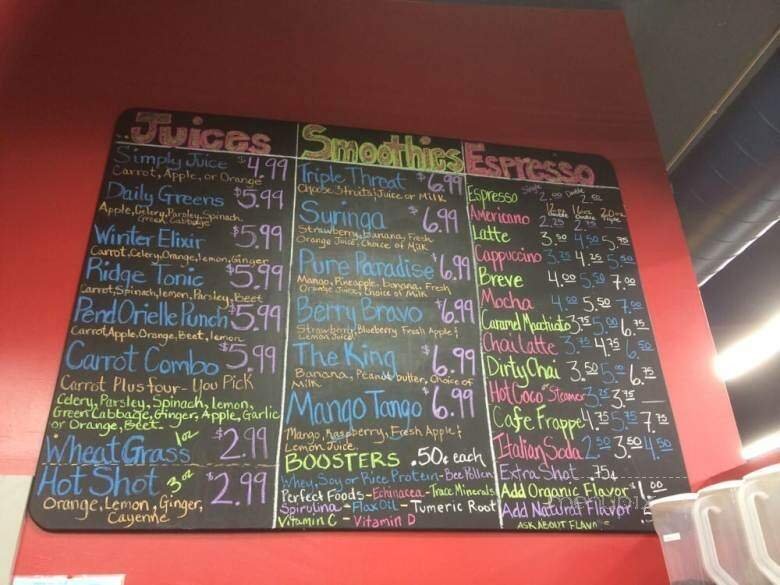 Juices
Simply Juice $4.99
Carrot, Apple, or Orange
Daily Greens $5.99
Apple, Celery, Parsley, Spinach,
Green Cabbage
Winter Elixir $5.99
Carrot, Celery, Orange, Lemon, Ginger
Ridge Tonic $5.99
Carrot, Spinach, Lemon, Parsley, Beet
Pend Orielle Punch $5.99
Carrot, Apple, Orange, Beet, Lemon
Carrot Combo $5.99
Carrot Plus four - You Pick
Celery, Parsley, Spinach, Lemon,
Green Cabbage, Ginger, Apple, Garlic
or Orange, Beet
Wheat Grass 1oz $2.99
Hot Shot 3oz $2.99
Orange, Lemon, Ginger,
Cayenne
Smoothies
Triple Threat $6.99
Choose 3 fruits, Juice or Milk
Suringa $6.99
Strawberry, Banana, Fresh
Orange Juice, Choice of Milk
Pure Paradise $6.99
Mango, Pineapple, Banana, Fresh
Orange Juice, Choice of Milk
Berry Bravo $6.99
Strawberry, Blueberry Fresh Apple &
Lemon Juice
The King $6.99
Banana, Peanut butter, Choice of
Milk
Mango Tango $6.99
Mango, Raspberry, Fresh Apple &
Lemon Juice
BOOSTERS .50¢ each
Whey, Soy or Rice Protein - Bee Pollen
Perfect Foods - Echinacea - Trace Minerals
Spirulina - Flax Oil - Tumeric Root
Vitamin C - Vitamin D
Espresso
Single Double
Espresso 2.00 2.50
12oz double 16oz double 20oz
Americano 2.25 2.75
Latte 3.50 4.50 5.75
Cappuccino 3.75 4.25 5.50
Breve 4.00 5.50 7.00
Mocha 4.00 5.50 7.00
Caramel Machiato 3.75 5.00 6.75
Chai Latte 3.75 4.75 6.50
Dirty Chai 3.50 5.00 6.75
Hot Coco Steamer 3.25 3.75
Cafe Frappe 4.75 5.75 7.75
Italian Soda 2.50 3.50 4.50
Extra Shot .75¢
Add Organic Flavor $1.00
Add Natural Flavor
ASK ABOUT FLAVO